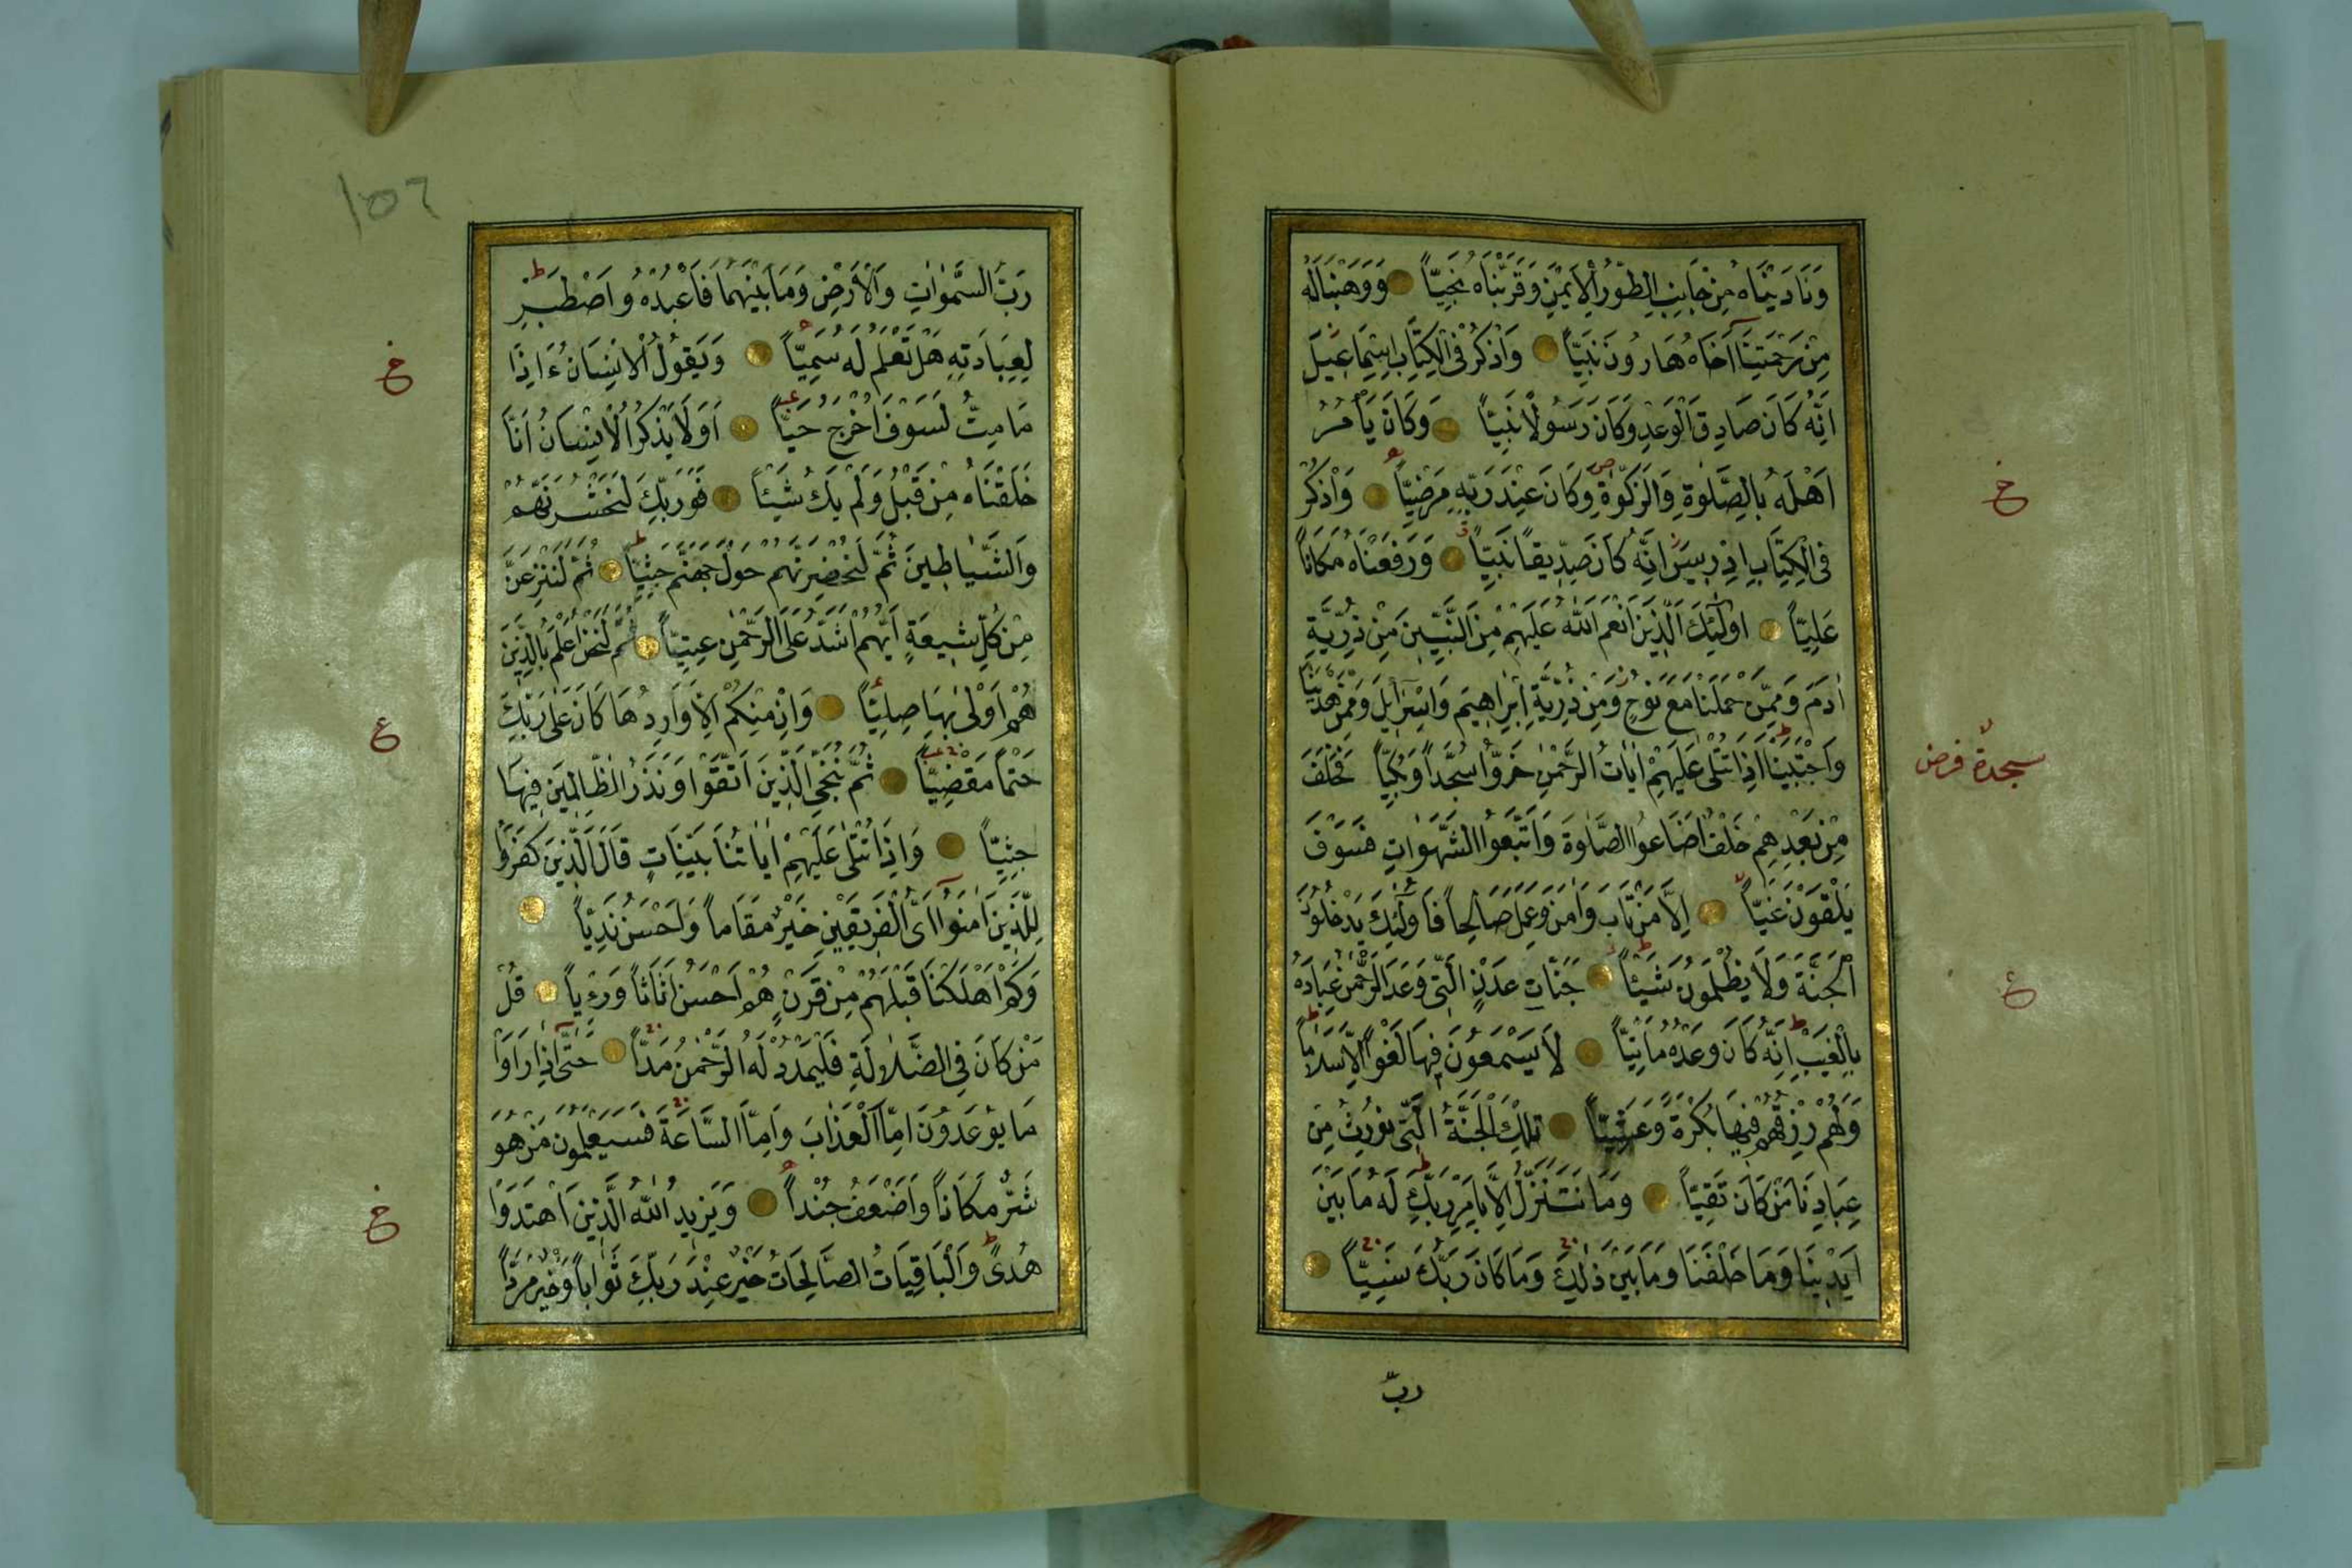 وَنَادَيْنَاهُ مِنْ جَانِبِ الطُّورِ الْاَيْمَنِ وَقَرَّبْنَاهُ نَجِيًّا وَوَهَبْنَالَهُ
مِنْ رَحْمَتِنَا اَخَاهُ هَارُونَ نَبِيًّا وَاذْكُرْ فِى الْكِتَابِ اِسْمَاعِيلَ
اِنَّهُ كَانَ صَادِقَ الْوَعْدِ وَكَانَ رَسُولًا نَبِيًّا وَكَانَ يَاْمُرُ
اَهْلَهُ بِالصَّلٰوةِ وَالزَّكٰوةِ وَكَانَ عِنْدَ رَبِّهِ مَرْضِيًّا وَاذْكُرْ
خ
فِى الْكِتَابِ اِدْرِيسَ اِنَّهُ كَانَ صِدِّيقًا نَبِيًّا وَرَفَعْنَاهُ مَكَانًا
عَلِيًّا اُولٰٓئِكَ الَّذِينَ اَنْعَمَ اللّٰهُ عَلَيْهِمْ مِنَ النَّبِيِّينَ مِنْ ذُرِّيَّةِ
اٰدَمَ وَمِمَّنْ حَمَلْنَا مَعَ نُوحٍ وَمِنْ ذُرِّيَّةِ اِبْرَاهِيمَ وَاِسْرَآئِلَ وَمِمَّنْ هَدَيْنَا
وَاجْتَبَيْنَا اِذَا تُتْلٰى عَلَيْهِمْ اٰيَاتُ الرَّحْمٰنِ خَرُّوا سُجَّدًا وَبُكِيًّا فَخَلَفَ
سجدهٔ فرض
مِنْ بَعْدِهِمْ خَلْفٌ اَضَاعُوا الصَّلٰوةَ وَاتَّبَعُوا الشَّهَوَاتِ فَسَوْفَ
يَلْقَوْنَ غَيًّا اِلَّا مَنْ تَابَ وَاٰمَنَ وَعَمِلَ صَالِحًا فَاُولٰٓئِكَ يَدْخُلُونَ
الْجَنَّةَ وَلَا يُظْلَمُونَ شَيْئًا جَنَّاتِ عَدْنٍ الَّتِى وَعَدَ الرَّحْمٰنُ عِبَادَهُ
ع
بِالْغَيْبِ اِنَّهُ كَانَ وَعْدُهُ مَاْتِيًّا لَا يَسْمَعُونَ فِيهَا لَغْوًا اِلَّا سَلَامًا
وَلَهُمْ رِزْقُهُمْ فِيهَا بُكْرَةً وَعَشِيًّا تِلْكَ الْجَنَّةُ الَّتِى نُورِثُ مِنْ
عِبَادِنَا مَنْ كَانَ تَقِيًّا وَمَا نَتَنَزَّلُ اِلَّا بِاَمْرِ رَبِّكَ لَهُ مَا بَيْنَ
اَيْدِينَا وَمَا خَلْفَنَا وَمَا بَيْنَ ذٰلِكَ وَمَا كَانَ رَبُّكَ نَسِيًّا
ربّ
١٥٦
رَبُّ السَّمٰوَاتِ وَالْاَرْضِ وَمَا بَيْنَهُمَا فَاعْبُدْهُ وَاصْطَبِرْ
لِعِبَادَتِهِ هَلْ تَعْلَمُ لَهُ سَمِيًّا وَيَقُولُ الْاِنْسَانُ ءَاِذَا
خ
مَا مِتُّ لَسَوْفَ اُخْرَجُ حَيًّا اَوَلَا يَذْكُرُ الْاِنْسَانُ اَنَّا
خَلَقْنَاهُ مِنْ قَبْلُ وَلَمْ يَكُ شَيْئًا فَوَرَبِّكَ لَنَحْشُرَنَّهُمْ
وَالشَّيَاطِينَ ثُمَّ لَنُحْضِرَنَّهُمْ حَوْلَ جَهَنَّمَ جِثِيًّا ثُمَّ لَنَنْزِعَنَّ
مِنْ كُلِّ شِيعَةٍ اَيُّهُمْ اَشَدُّ عَلَى الرَّحْمٰنِ عِتِيًّا ثُمَّ لَنَحْنُ اَعْلَمُ بِالَّذِينَ
هُمْ اَوْلٰى بِهَا صِلِيًّا وَاِنْ مِنْكُمْ اِلَّا وَارِدُهَا كَانَ عَلٰى رَبِّكَ
ع
حَتْمًا مَقْضِيًّا ثُمَّ نُنَجِّى الَّذِينَ اتَّقَوْا وَنَذَرُ الظَّالِمِينَ فِيهَا
جِثِيًّا وَاِذَا تُتْلٰى عَلَيْهِمْ اٰيَاتُنَا بَيِّنَاتٍ قَالَ الَّذِينَ كَفَرُوا
لِلَّذِينَ اٰمَنُوا اَىُّ الْفَرِيقَيْنِ خَيْرٌ مَقَامًا وَاَحْسَنُ نَدِيًّا
وَكَمْ اَهْلَكْنَا قَبْلَهُمْ مِنْ قَرْنٍ هُمْ اَحْسَنُ اَثَاثًا وَرِءْيًا قُلْ
مَنْ كَانَ فِى الضَّلَالَةِ فَلْيَمْدُدْ لَهُ الرَّحْمٰنُ مَدًّا حَتّٰٓى اِذَا رَاَوْا
مَا يُوعَدُونَ اِمَّا الْعَذَابَ وَاِمَّا السَّاعَةَ فَسَيَعْلَمُونَ مَنْ هُوَ
شَرٌّ مَكَانًا وَاَضْعَفُ جُنْدًا وَيَزِيدُ اللّٰهُ الَّذِينَ اهْتَدَوْا
خ
هُدًى وَالْبَاقِيَاتُ الصَّالِحَاتُ خَيْرٌ عِنْدَ رَبِّكَ ثَوَابًا وَخَيْرٌ مَرَدًّا